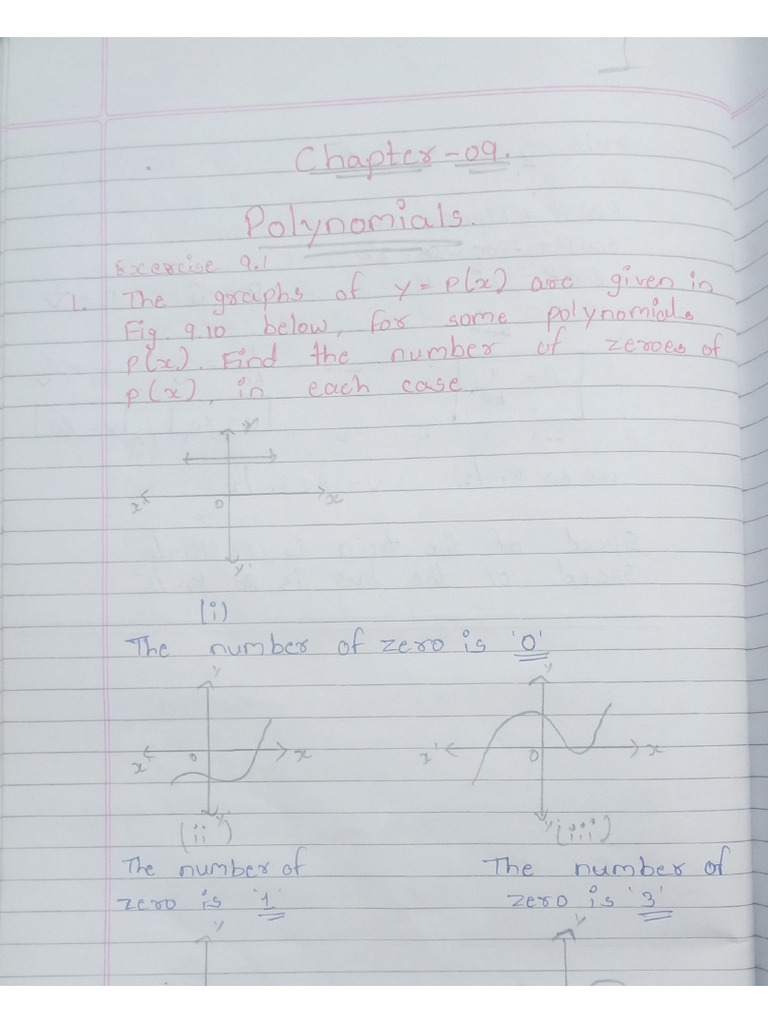 Chapter-09.
Polynomials.
Exercise 9.1
1. The graphs of y = P(x) are given in
Fig 9.10 below, for some polynomials
P(x). Find the number of zeroes of
P(x), in each case.
y
x' 0 x
y'
(i)
The number of zero is '0'
y y
x' 0 x x' 0 x
y' y'
(ii) (iii)
The number of The number of
zero is '1' zero is '3'
y y